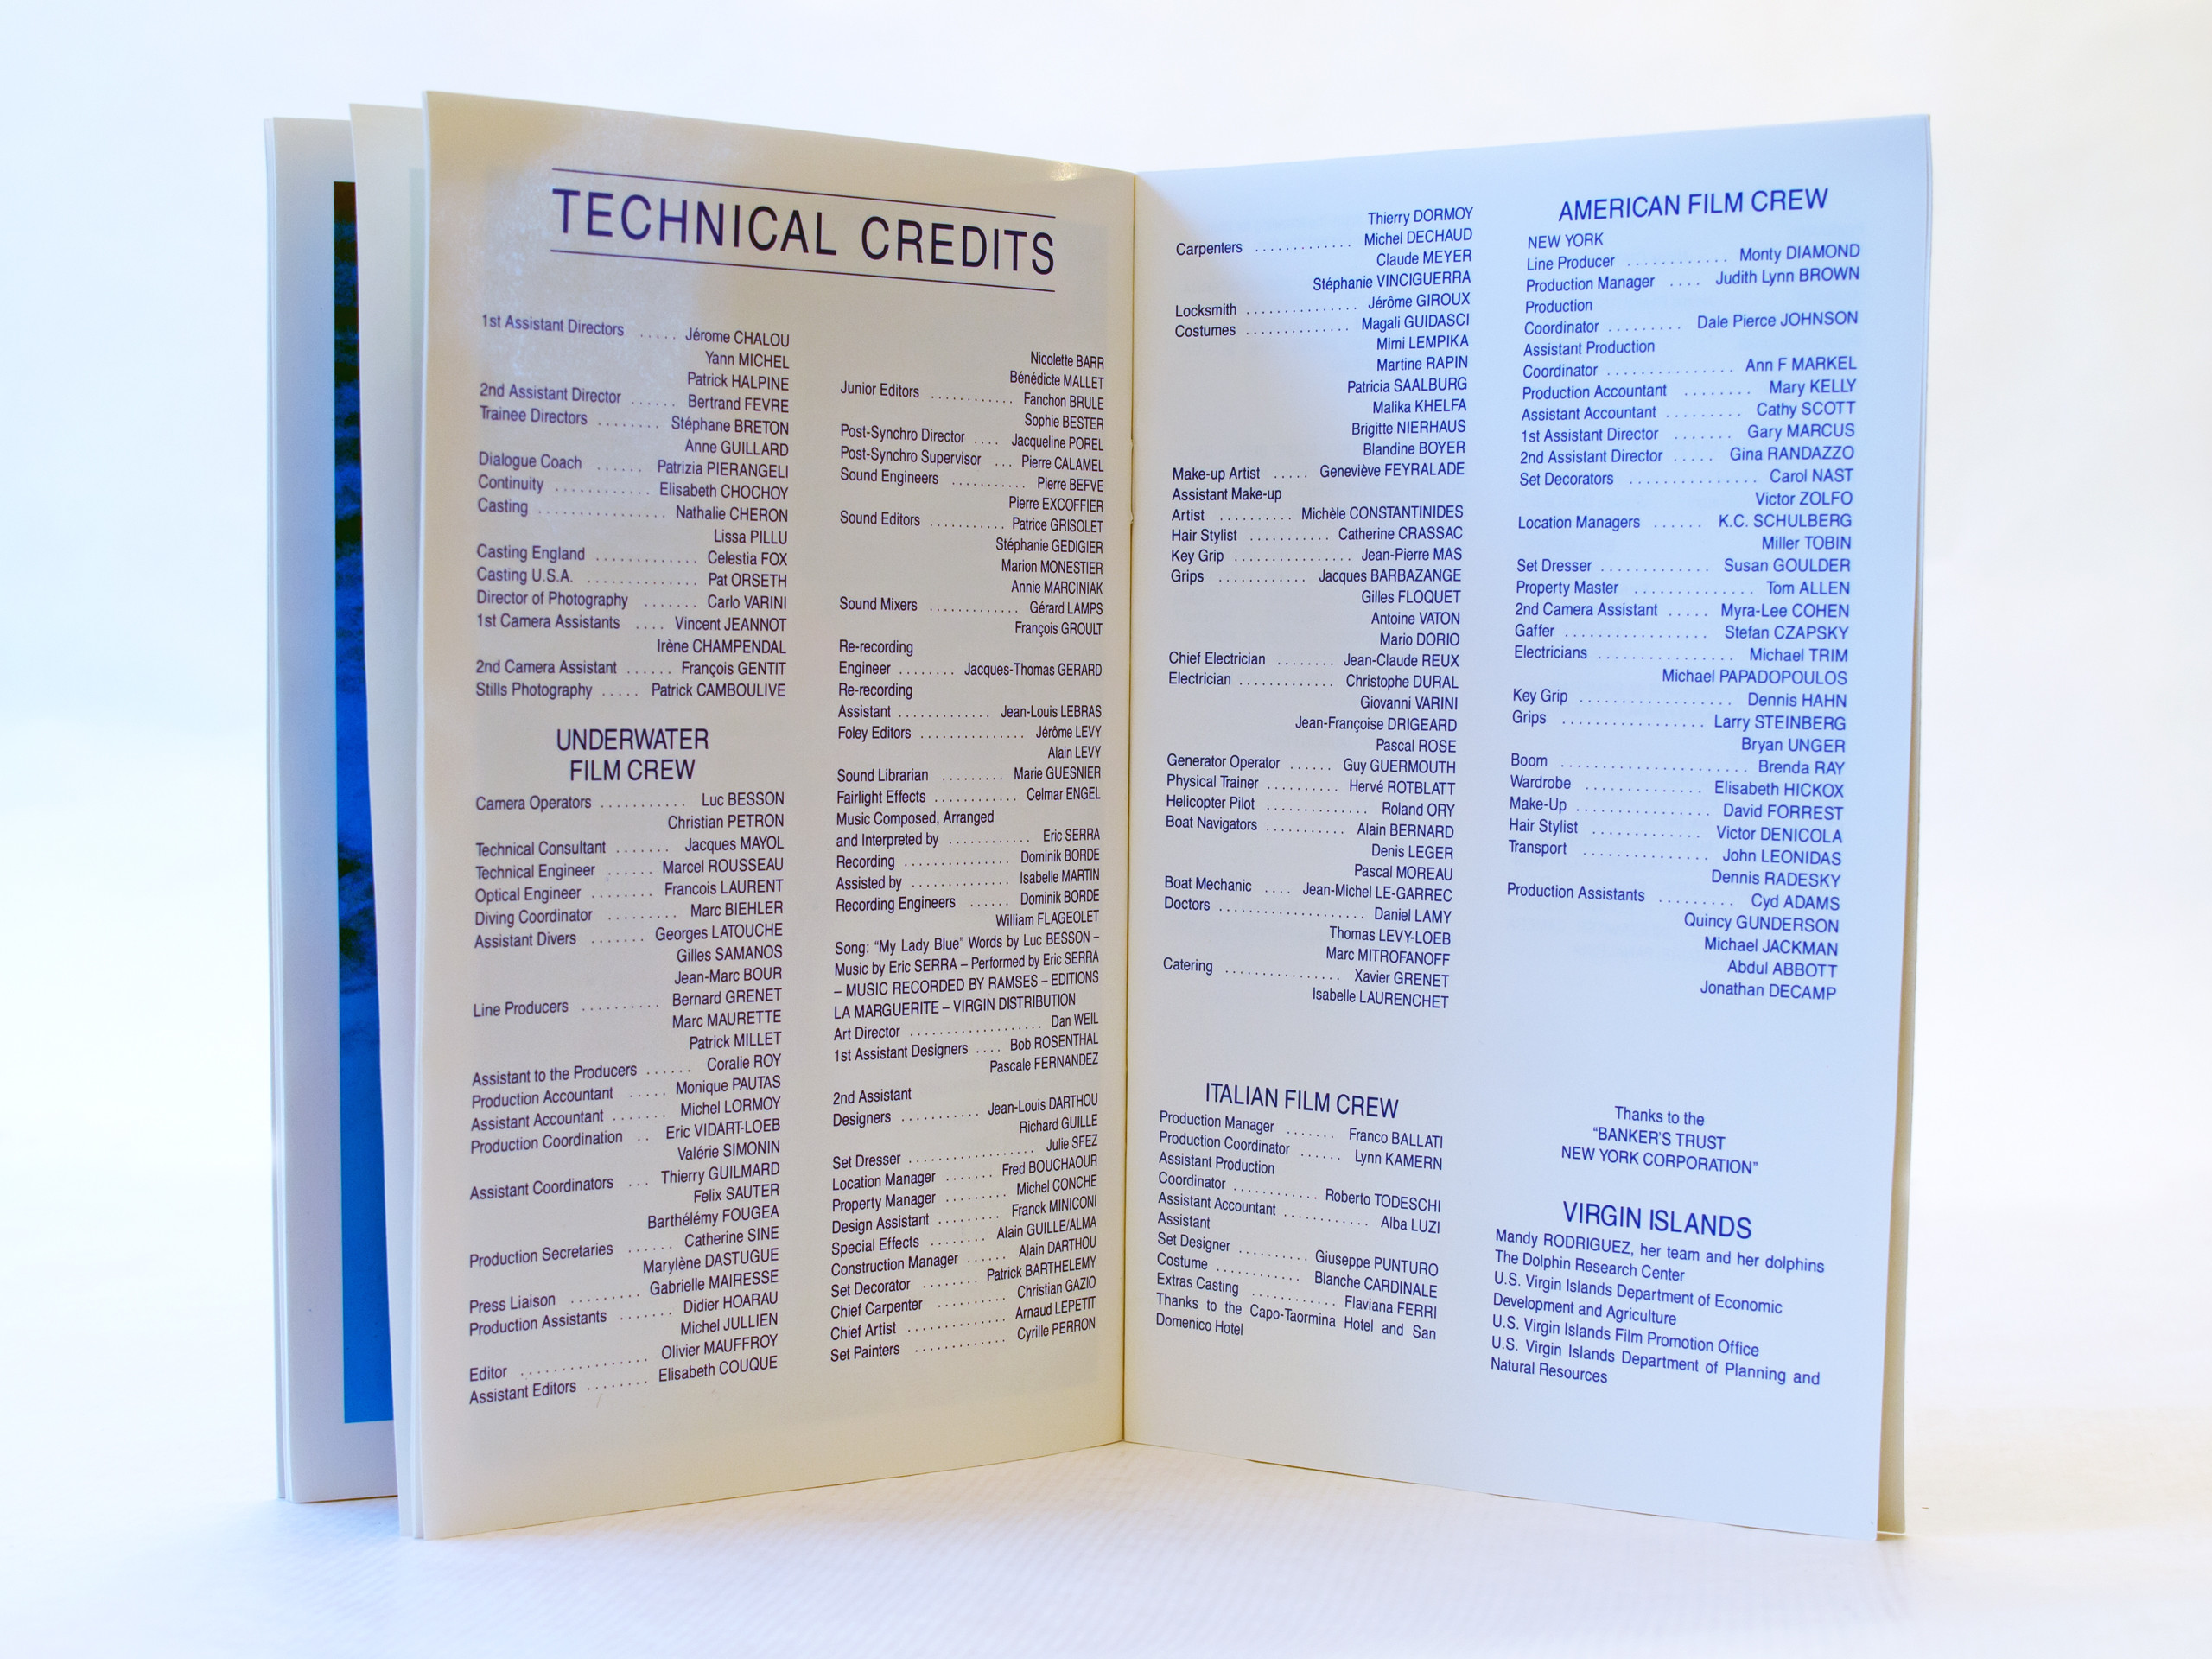 TECHNICAL CREDITS
1st Assistant Directors ..... Jérome CHALOU
Yann MICHEL
Patrick HALPINE
2nd Assistant Director ...... Bertrand FEVRE
Trainee Directors ........ Stéphane BRETON
Anne GUILLARD
Dialogue Coach ...... Patrizia PIERANGELI
Continuity ............ Elisabeth CHOCHOY
Casting ................ Nathalie CHERON
Lissa PILLU
Casting England ............. Celestia FOX
Casting U.S.A. .............. Pat ORSETH
Director of Photography ....... Carlo VARINI
1st Camera Assistants .... Vincent JEANNOT
Irène CHAMPENDAL
2nd Camera Assistant ...... François GENTIT
Stills Photography ..... Patrick CAMBOULIVE
UNDERWATER
FILM CREW
Camera Operators ........... Luc BESSON
Christian PETRON
Technical Consultant ....... Jacques MAYOL
Technical Engineer ...... Marcel ROUSSEAU
Optical Engineer ....... Francois LAURENT
Diving Coordinator .......... Marc BIEHLER
Assistant Divers ....... Georges LATOUCHE
Gilles SAMANOS
Jean-Marc BOUR
Line Producers .......... Bernard GRENET
Marc MAURETTE
Patrick MILLET
Assistant to the Producers ...... Coralie ROY
Production Accountant ..... Monique PAUTAS
Assistant Accountant ....... Michel LORMOY
Production Coordination .. Eric VIDART-LOEB
Valérie SIMONIN
Assistant Coordinators ... Thierry GUILMARD
Felix SAUTER
Barthélémy FOUGEA
Production Secretaries ...... Catherine SINE
Marylène DASTUGUE
Press Liaison ......... Gabrielle MAIRESSE
Production Assistants ....... Didier HOARAU
Michel JULLIEN
Editor ................ Olivier MAUFFROY
Assistant Editors ........ Elisabeth COUQUE
Nicolette BARR
Bénédicte MALLET
Junior Editors ............ Fanchon BRULE
Sophie BESTER
Post-Synchro Director .... Jacqueline POREL
Post-Synchro Supervisor ... Pierre CALAMEL
Sound Engineers ........... Pierre BEFVE
Pierre EXCOFFIER
Sound Editors ........... Patrice GRISOLET
Stéphanie GEDIGIER
Marion MONESTIER
Annie MARCINIAK
Sound Mixers ............. Gérard LAMPS
François GROULT
Re-recording
Engineer ........ Jacques-Thomas GERARD
Re-recording
Assistant ............. Jean-Louis LEBRAS
Foley Editors ............... Jérôme LEVY
Alain LEVY
Sound Librarian ......... Marie GUESNIER
Fairlight Effects ............ Celmar ENGEL
Music Composed, Arranged
and Interpreted by ............ Eric SERRA
Recording ............... Dominik BORDE
Assisted by .............. Isabelle MARTIN
Recording Engineers ...... Dominik BORDE
William FLAGEOLET
Song: “My Lady Blue” Words by Luc BESSON –
Music by Eric SERRA – Performed by Eric SERRA
– MUSIC RECORDED BY RAMSES – EDITIONS
LA MARGUERITE – VIRGIN DISTRIBUTION
Art Director ................... Dan WEIL
1st Assistant Designers .... Bob ROSENTHAL
Pascale FERNANDEZ
2nd Assistant
Designers ........... Jean-Louis DARTHOU
Richard GUILLE
Set Dresser .................. Julie SFEZ
Location Manager ....... Fred BOUCHAOUR
Property Manager ......... Michel CONCHE
Design Assistant ......... Franck MINICONI
Special Effects ........ Alain GUILLE/ALMA
Construction Manager ...... Alain DARTHOU
Set Decorator ........ Patrick BARTHELEMY
Chief Carpenter .......... Christian GAZIO
Chief Artist ............. Arnaud LEPETIT
Set Painters ............. Cyrille PERRON
Thierry DORMOY
Carpenters ............. Michel DECHAUD
Claude MEYER
Stéphanie VINCIGUERRA
Locksmith ............... Jérôme GIROUX
Costumes .............. Magali GUIDASCI
Mimi LEMPIKA
Martine RAPIN
Patricia SAALBURG
Malika KHELFA
Brigitte NIERHAUS
Blandine BOYER
Make-up Artist ..... Geneviève FEYRALADE
Assistant Make-up
Artist .......... Michèle CONSTANTINIDES
Hair Stylist ........... Catherine CRASSAC
Key Grip ................ Jean-Pierre MAS
Grips ............ Jacques BARBAZANGE
Gilles FLOQUET
Antoine VATON
Mario DORIO
Chief Electrician ........ Jean-Claude REUX
Electrician ............. Christophe DURAL
Giovanni VARINI
Jean-Françoise DRIGEARD
Pascal ROSE
Generator Operator ...... Guy GUERMOUTH
Physical Trainer .......... Hervé ROTBLATT
Helicopter Pilot .............. Roland ORY
Boat Navigators ........... Alain BERNARD
Denis LEGER
Pascal MOREAU
Boat Mechanic .... Jean-Michel LE-GARREC
Doctors .................... Daniel LAMY
Thomas LEVY-LOEB
Marc MITROFANOFF
Catering ................ Xavier GRENET
Isabelle LAURENCHET
ITALIAN FILM CREW
Production Manager ....... Franco BALLATI
Production Coordinator ...... Lynn KAMERN
Assistant Production
Coordinator ............ Roberto TODESCHI
Assistant Accountant ............ Alba LUZI
Assistant
Set Designer .......... Giuseppe PUNTURO
Costume ............ Blanche CARDINALE
Extras Casting ............ Flaviana FERRI
Thanks to the Capo-Taormina Hotel and San
Domenico Hotel
AMERICAN FILM CREW
NEW YORK
Line Producer ............ Monty DIAMOND
Production Manager .... Judith Lynn BROWN
Production
Coordinator ......... Dale Pierce JOHNSON
Assistant Production
Coordinator ............... Ann F MARKEL
Production Accountant ........ Mary KELLY
Assistant Accountant ......... Cathy SCOTT
1st Assistant Director ....... Gary MARCUS
2nd Assistant Director ..... Gina RANDAZZO
Set Decorators ............... Carol NAST
Victor ZOLFO
Location Managers ...... K.C. SCHULBERG
Miller TOBIN
Set Dresser ............. Susan GOULDER
Property Master .............. Tom ALLEN
2nd Camera Assistant ..... Myra-Lee COHEN
Gaffer ................. Stefan CZAPSKY
Electricians ................ Michael TRIM
Michael PAPADOPOULOS
Key Grip .................. Dennis HAHN
Grips ................. Larry STEINBERG
Bryan UNGER
Boom ...................... Brenda RAY
Wardrobe ............. Elisabeth HICKOX
Make-Up ................ David FORREST
Hair Stylist ............. Victor DENICOLA
Transport ............... John LEONIDAS
Dennis RADESKY
Production Assistants ......... Cyd ADAMS
Quincy GUNDERSON
Michael JACKMAN
Abdul ABBOTT
Jonathan DECAMP
Thanks to the
“BANKER’S TRUST
NEW YORK CORPORATION”
VIRGIN ISLANDS
Mandy RODRIGUEZ, her team and her dolphins
The Dolphin Research Center
U.S. Virgin Islands Department of Economic
Development and Agriculture
U.S. Virgin Islands Film Promotion Office
U.S. Virgin Islands Department of Planning and
Natural Resources